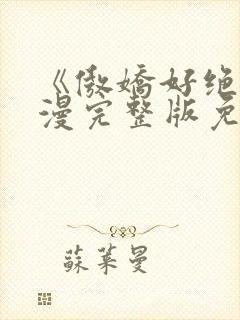 《傲嬌好绝
漫完整版免
蘇萊曼